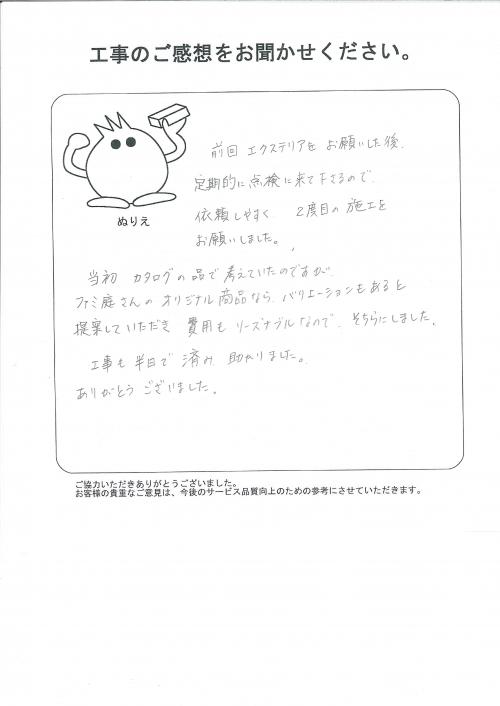 工事のご感想をお聞かせください。
ぬりえ
前回 エクステリアを お願いした後、
定期的に点検に来て下さるので、
依頼しやすく 2度目の施工を
お願いしました。
当初 カタログの品で考えていたのですが
ファミ庭さんの オリジナル商品なら、バリエーションもあると
提案していただき 費用も リーズナブルなので、そちらにしました。
工事も半日で済み 助かりました。
ありがとうございました。
ご協力いただきありがとうございました。
お客様の貴重なご意見は、今後のサービス品質向上のための参考にさせていただきます。